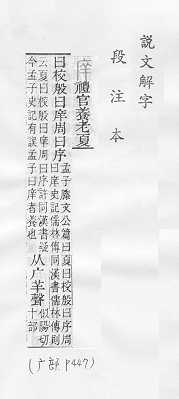 說文解字
段注本
庠禮官養老夏
曰校殷曰庠周曰序孟子滕文公篇曰夏曰校殷曰序周
曰庠史記儒林傳同漢書儒林傳則
云夏曰校殷曰庠周曰序許同漢書疑
今孟子史記有誤孟子曰庠者養也从广羊聲似陽切
十部
(广部 P447)